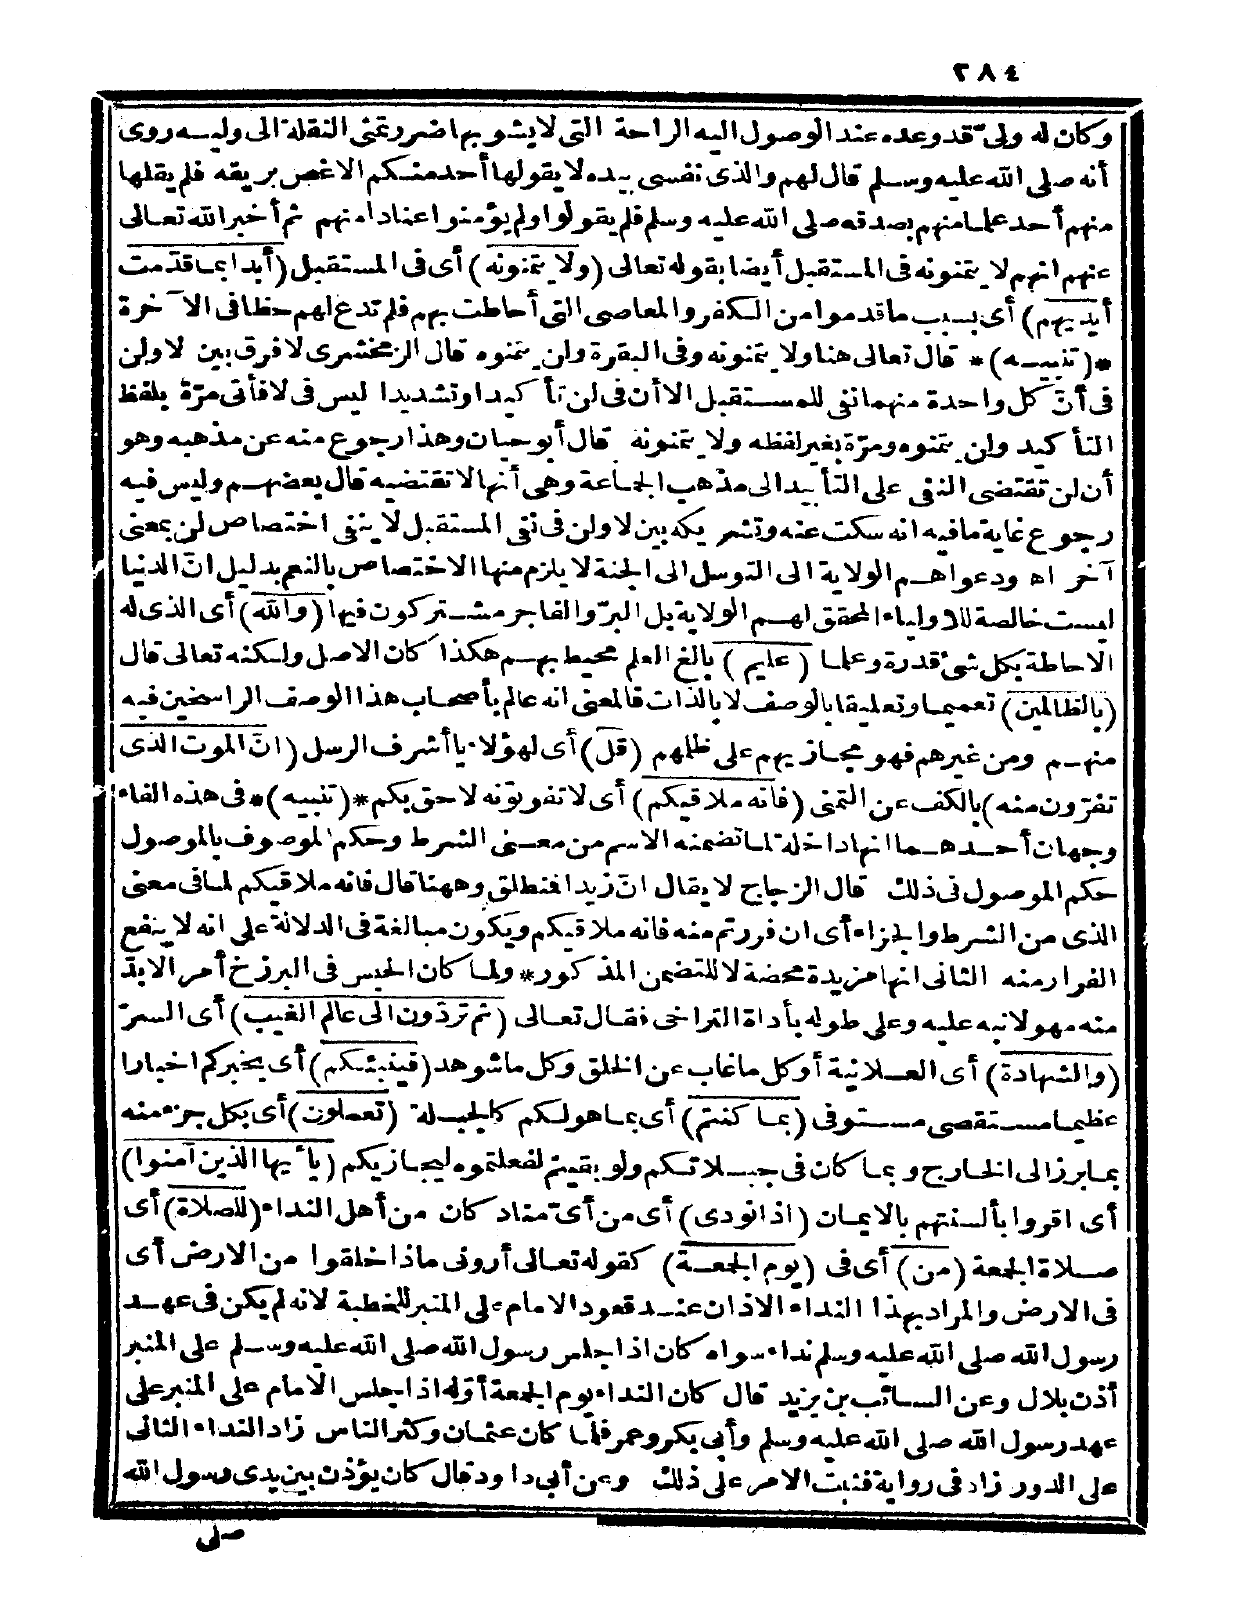 ٢٨٤
وكان له ولىّ قد وعده عند الوصول اليه الراحة التى لا يشوبها ضرر تمنى النقلة الى وليه روى
أنه صلى الله عليه وسلم قال لهم والذى نفسى بيده لا يقولها أحد منكم الا غص بريقه فلم يقلها
منهم أحد علما منهم بصدقه صلى الله عليه وسلم فلم يقولوا ولم يؤمنوا عنادا منهم ثم أخبر الله تعالى
عنهم انهم لا يتمنونه فى المستقبل أيضا بقوله تعالى (ولا يتمنونه) أى فى المستقبل (أبدا بما قدّمت
أيديهم) أى بسبب ما قدموا من الكفر والمعاصى التى أحاطت بهم فلم تدع لهم حظا فى الآخرة
*(تنبيه)* قال تعالى هنا ولا يتمنونه وفى البقرة ولن يتمنوه قال الزمخشرى لا فرق بين لا ولن
فى أنّ كل واحدة منهما نفى للمستقبل الا أن فى لن تأكيدا وتشديدا ليس فى لا فأتى مرّة بلفظ
التأكيد ولن يتمنوه ومرّة بغير لفظه ولا يتمنونه قال أبو حيان وهذا رجوع منه عن مذهبه وهو
أن لن تقتضى النفى على التأبيد الى مذهب الجماعة وهى أنها لا تقتضيه قال بعضهم وليس فيه
رجوع غاية ما فيه انه سكت عنه وتشريكه بين لا ولن فى نفى المستقبل لا ينفى اختصاص لن بمعنى
آخر اه ودعواهم الولاية الى التوسل الى الجنة لا يلزم منها الاختصاص بالنعم بدليل انّ الدنيا
ليست خالصة للاولياء المحقق لهم الولاية بل البرّ والفاجر مشتركون فيها (والله) أى الذى له
الاحاطة بكل شئ قدرة وعلما (عليم) بالغ العلم محيط بهم هكذا كان الاصل ولكنه تعالى قال
(بالظالمين) تعميما وتعليقا بالوصف لا بالذات فالمعنى انه عالم بأصحاب هذا الوصف الراسخين فيه
منهم ومن غيرهم فهو مجازيهم على ظلمهم (قل) أى لهؤلاء يا أشرف الرسل (انّ الموت الذى
تفرّون منه) بالكف عن التمنى (فانه ملاقيكم) أى لا تفوتونه لاحق بكم *(تنبيه)* فى هذه الفاء
وجهان أحدهما انها داخلة لما تضمنه الاسم من معنى الشرط وحكم الموصوف بالموصول
حكم الموصول فى ذلك قال الزجاج لا يقال انّ زيدا فمنطلق وههنا قال فانه ملاقيكم لما فى معنى
الذى من الشرط والجزاء أى ان فررتم منه فانه ملاقيكم ويكون مبالغة فى الدلالة على انه لا ينفع
الفرار منه الثانى انها مزيدة محضة لا للتضمن المذكور * ولما كان الحبس فى البرزخ أمر الابدّ
منه مهولا نبه عليه وعلى طوله بأداة التراخى فقال تعالى (ثم تردّون الى عالم الغيب) أى السرّ
(والشهادة) أى العلانية أو كل ما غاب عن الخلق وكل ما شوهد (فينبئكم) أى يخبركم اخبارا
عظيما مستقصى مستوفى (بما كنتم) أى بما هو لكم كالجبلة (تعملون) أى بكل جزء منه
بما برز الى الخارج وبما كان فى جبلاتكم ولو بقيتم لفعلتموه ليجازيكم (يا أيها الذين آمنوا)
أى اقروا بألسنتهم بالايمان (اذا نودى) أى من أىّ مناد كان من أهل النداء (للصلاة) أى
صلاة الجمعة (من) أى فى (يوم الجمعة) كقوله تعالى أرونى ماذا خلقوا من الارض أى
فى الارض والمراد بهذا النداء الاذان عند قعود الامام على المنبر للخطبة لانه لم يكن فى عهد
رسول الله صلى الله عليه وسلم نداء سواه كان اذا جلس رسول الله صلى الله عليه وسلم على المنبر
أذن بلال وعن السائب بن يزيد قال كان النداء يوم الجمعة أوّله اذا جلس الامام على المنبر على
عهد رسول الله صلى الله عليه وسلم وأبى بكر وعمر فلما كان عثمان وكثر الناس زاد النداء الثانى
على الدور زاد فى رواية فثبت الامر على ذلك وعن أبى داود قال كان يؤذن بين يدى رسول الله
صلى